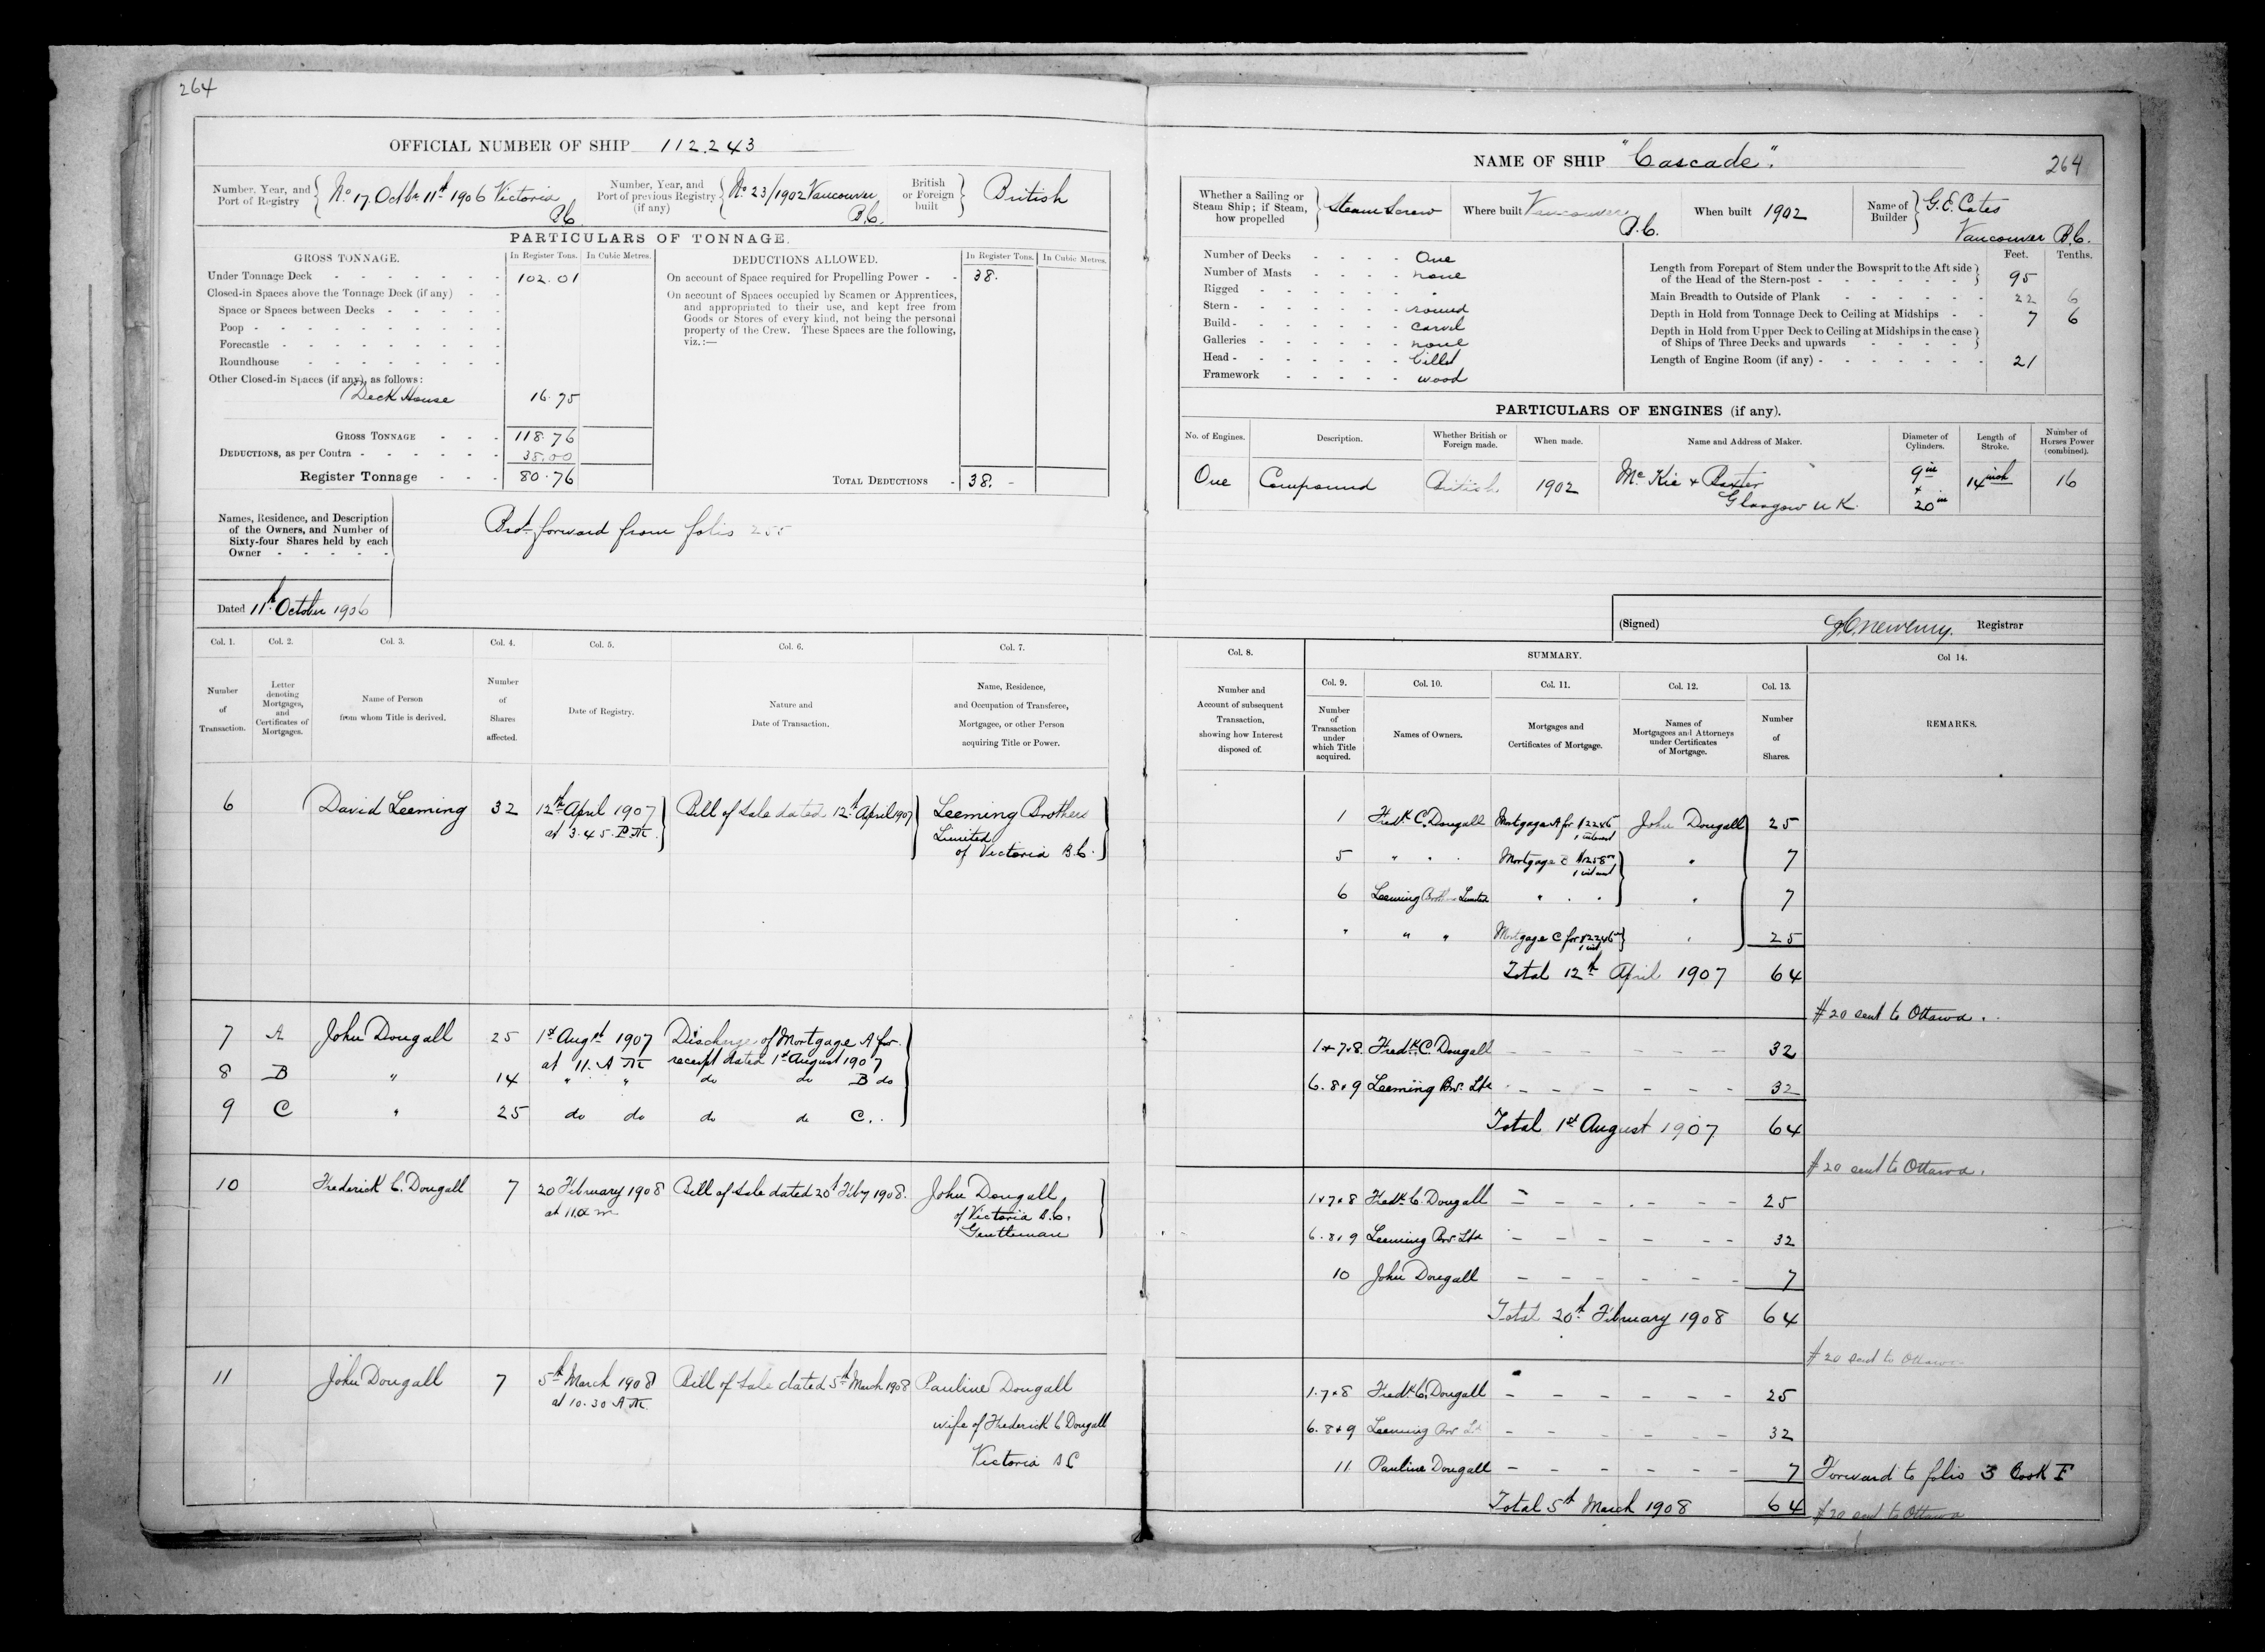 264
OFFICIAL NUMBER OF SHIP 112.243
Number, Year, and Port of Registry { No 17 Octbr 11th 1906 Victoria B.C.
Number, Year, and Port of previous Registry (if any) { No 23/1902 Vancouver B.C.
British or Foreign built } British
PARTICULARS OF TONNAGE.
GROSS TONNAGE. In Register Tons. In Cubic Metres.
Under Tonnage Deck - - - - - - - 102.01
Closed-in Spaces above the Tonnage Deck (if any) - -
Space or Spaces between Decks - - - - -
Poop - - - - - - - - - -
Forecastle - - - - - - - - -
Roundhouse - - - - - - - -
Other Closed-in Spaces (if any), as follows:
Deck House 16.75
GROSS TONNAGE - - - 118.76
DEDUCTIONS, as per Contra - - - - - - 38.00
Register Tonnage - - - 80.76
DEDUCTIONS ALLOWED. In Register Tons. In Cubic Metres.
On account of Space required for Propelling Power - - 38.
On account of Spaces occupied by Seamen or Apprentices,
and appropriated to their use, and kept free from
Goods or Stores of every kind, not being the personal
property of the Crew. These Spaces are the following,
viz.:—
TOTAL DEDUCTIONS - 38. -
Names, Residence, and Description
of the Owners, and Number of
Sixty-four Shares held by each
Owner - - - - -
Brot forward from folio 255
Dated 11th October 1906
Col. 1. Col. 2. Col. 3. Col. 4. Col. 5. Col. 6. Col. 7.
Number of Transaction.
Letter denoting Mortgages, and Certificates of Mortgages.
Name of Person from whom Title is derived.
Number of Shares affected.
Date of Registry.
Nature and Date of Transaction.
Name, Residence, and Occupation of Transferee, Mortgagee, or other Person acquiring Title or Power.
6 David Leeming 32 12th April 1907 Bill of Sale dated 12th April 1907 Leeming Brothers
at 3.45 P.M. Limited
of Victoria B.C.
7 A John Dougall 25 1st Augst 1907 Discharge of Mortgage A for
at 11. A M receipt dated 1st August 1907
8 B " 14 " " do do B do
9 C " 25 do do do do C..
10 Frederick C. Dougall 7 20 February 1908 Bill of Sale dated 20th Feby 1908. John Dougall
at 11 a m of Victoria B.C.
Gentleman
11 John Dougall 7 5th March 1908 Bill of Sale dated 5th March 1908 Pauline Dougall
at 10.30 A.M. wife of Frederick C Dougall
Victoria B C
NAME OF SHIP "Cascade". 264
Whether a Sailing or Steam Ship; if Steam, how propelled } Steam Screw
Where built Vancouver B.C.
When built 1902
Name of Builder } G. E. Cates
Vancouver B.C.
Number of Decks - - - - One
Number of Masts - - - - none
Rigged - - - - - - -
Stern - - - - - - - round
Build - - - - - - - carvel
Galleries - - - - - - none
Head - - - - - - - billet
Framework - - - - - wood
Feet. Tenths.
Length from Forepart of Stem under the Bowsprit to the Aft side
of the Head of the Stern-post - - - - - - - } 95
Main Breadth to Outside of Plank - - - - - - 22 6
Depth in Hold from Tonnage Deck to Ceiling at Midships - - 7 6
Depth in Hold from Upper Deck to Ceiling at Midships in the case
of Ships of Three Decks and upwards - - - - - }
Length of Engine Room (if any) - - - - - - - - 21
PARTICULARS OF ENGINES (if any).
No. of Engines. Description. Whether British or Foreign made. When made. Name and Address of Maker. Diameter of Cylinders. Length of Stroke. Number of Horses Power (combined).
One Compound British 1902 McKie & Baxter 9in 14 inch 16
Glasgow U K. + 20in
(Signed) Registrar
Col. 8. SUMMARY. Col 14.
Col. 9. Col. 10. Col. 11. Col. 12. Col. 13.
Number and Account of subsequent Transaction, showing how Interest disposed of.
Number of Transaction under which Title acquired.
Names of Owners.
Mortgages and Certificates of Mortgage.
Names of Mortgagees and Attorneys under Certificates of Mortgage.
Number of Shares.
REMARKS.
1 Fredk C. Dougall Mortgage A for $2246 & interest John Dougall 25
5 " " " Mortgage & interest " 7
6 Leeming Brothers Limited " " " " 7
" " " Mortgage C for $2246 & int " 25
Total 12th April 1907 64
#20 sent to Ottawa.
1 & 7 & 8. Fredk. C. Dougall - - - - - - 32
6. 8 & 9 Leeming Bros. Ltd - - - - - - 32
Total 1st August 1907 64
#20 sent to Ottawa.
1 & 7 & 8 Fredk. C. Dougall - - - - - - 25
6. 8 & 9 Leeming Bros. Ltd - - - - - - 32
10 John Dougall - - - - - - 7
Total 20th February 1908 64
#20 sent to Ottawa
1. 7 & 8 Fredk. C. Dougall - - - - - - 25
6. 8 & 9 Leeming Bros Lt - - - - - - 32
11 Pauline Dougall - - - - - - 7 Forward to folio 3 Book F
Total 5th March 1908 64 #20 sent to Ottawa